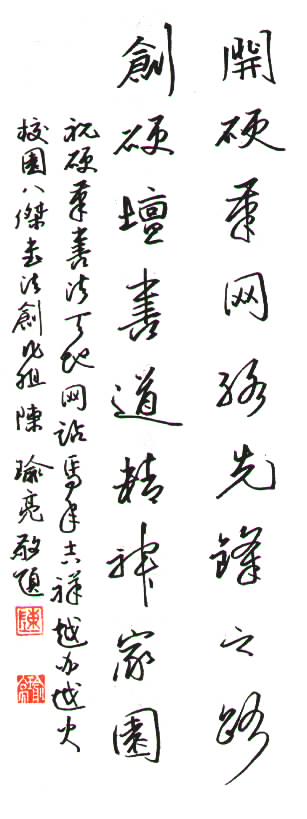 開硬筆网络先鋒之路
創硬壇書道精神家園
祝硬筆書法天地网站馬年吉祥越办越火
校園八傑書法創作組陳瑜亮敬題
陳
瑜亮